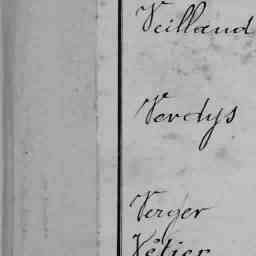 Veilland
Verdys
Verger
Vétier